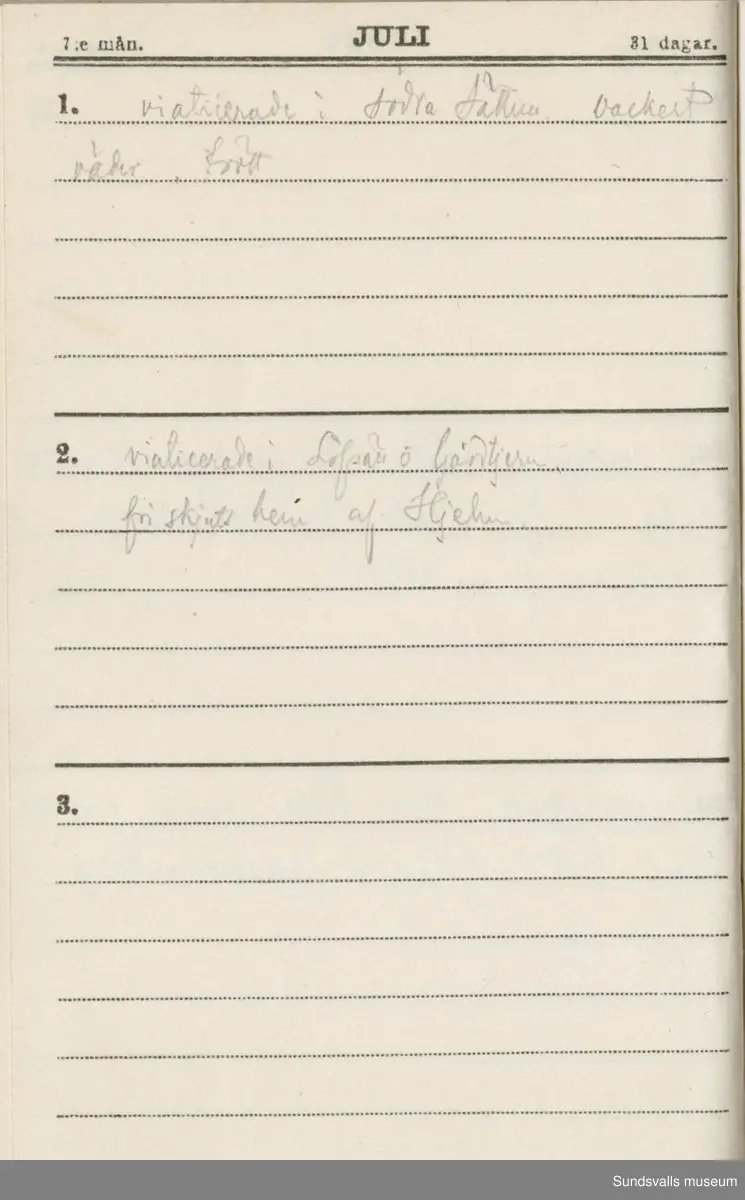 7:e mån. JULI 31 dagar.
1. viaticerade i Södra Sättna. vackert
väder. Trött
2. viaticerade i Löfsåu o Gärdtjern.
fri skjuts hem af Hjelm.
3.
Sundsvalls museum